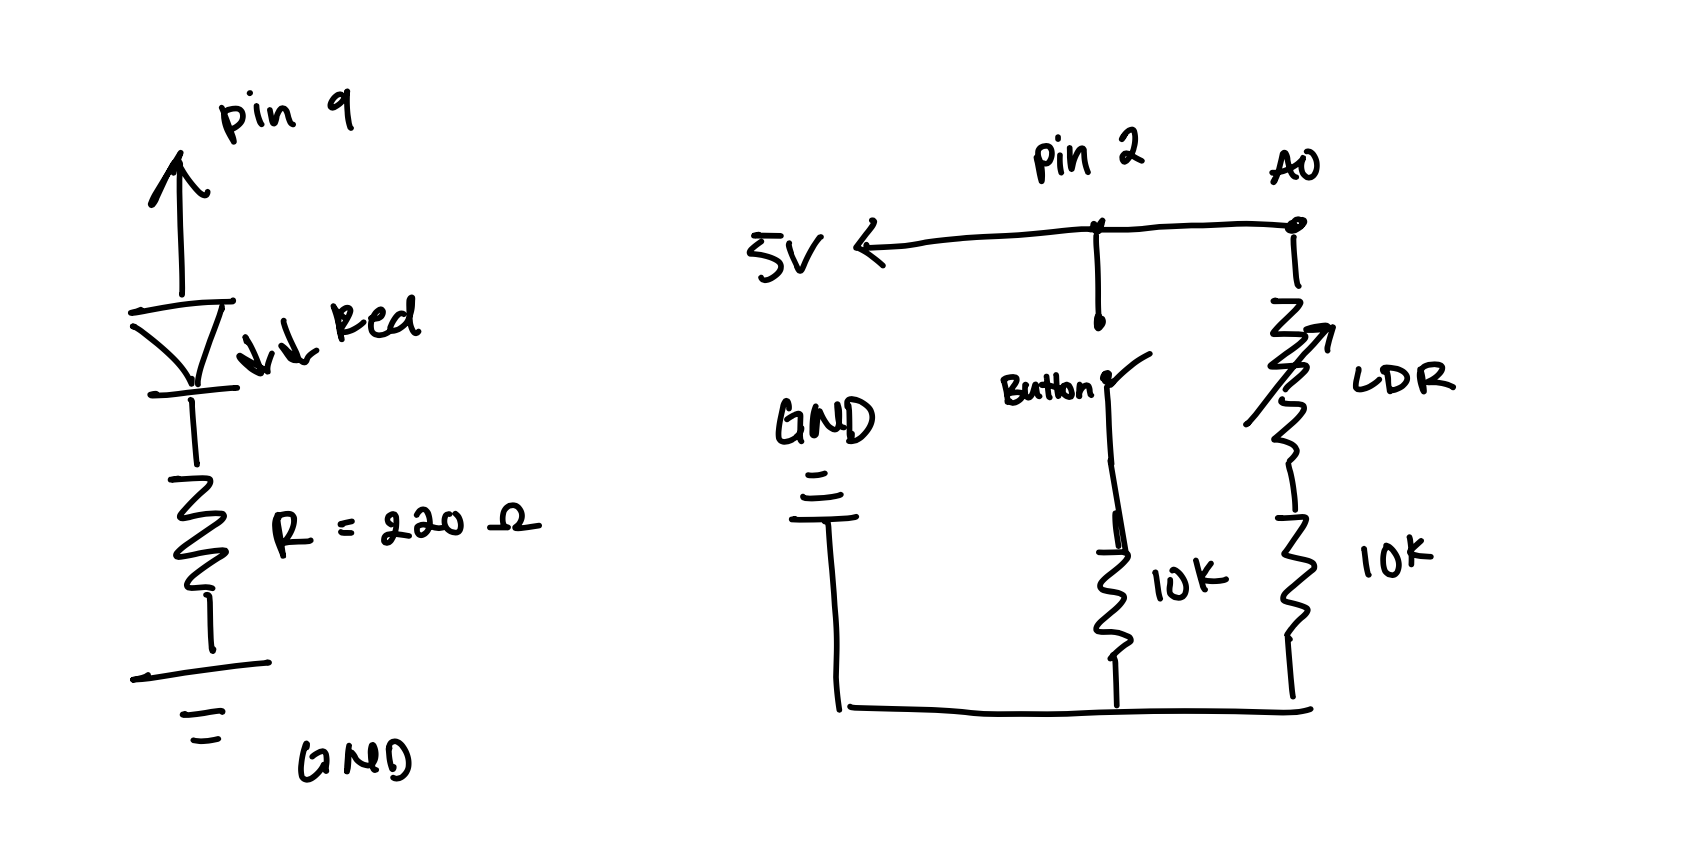 pin 9
Red
R = 220 Ω
GND
pin 2
A0
5V
Button
GND
LDR
10K
10K